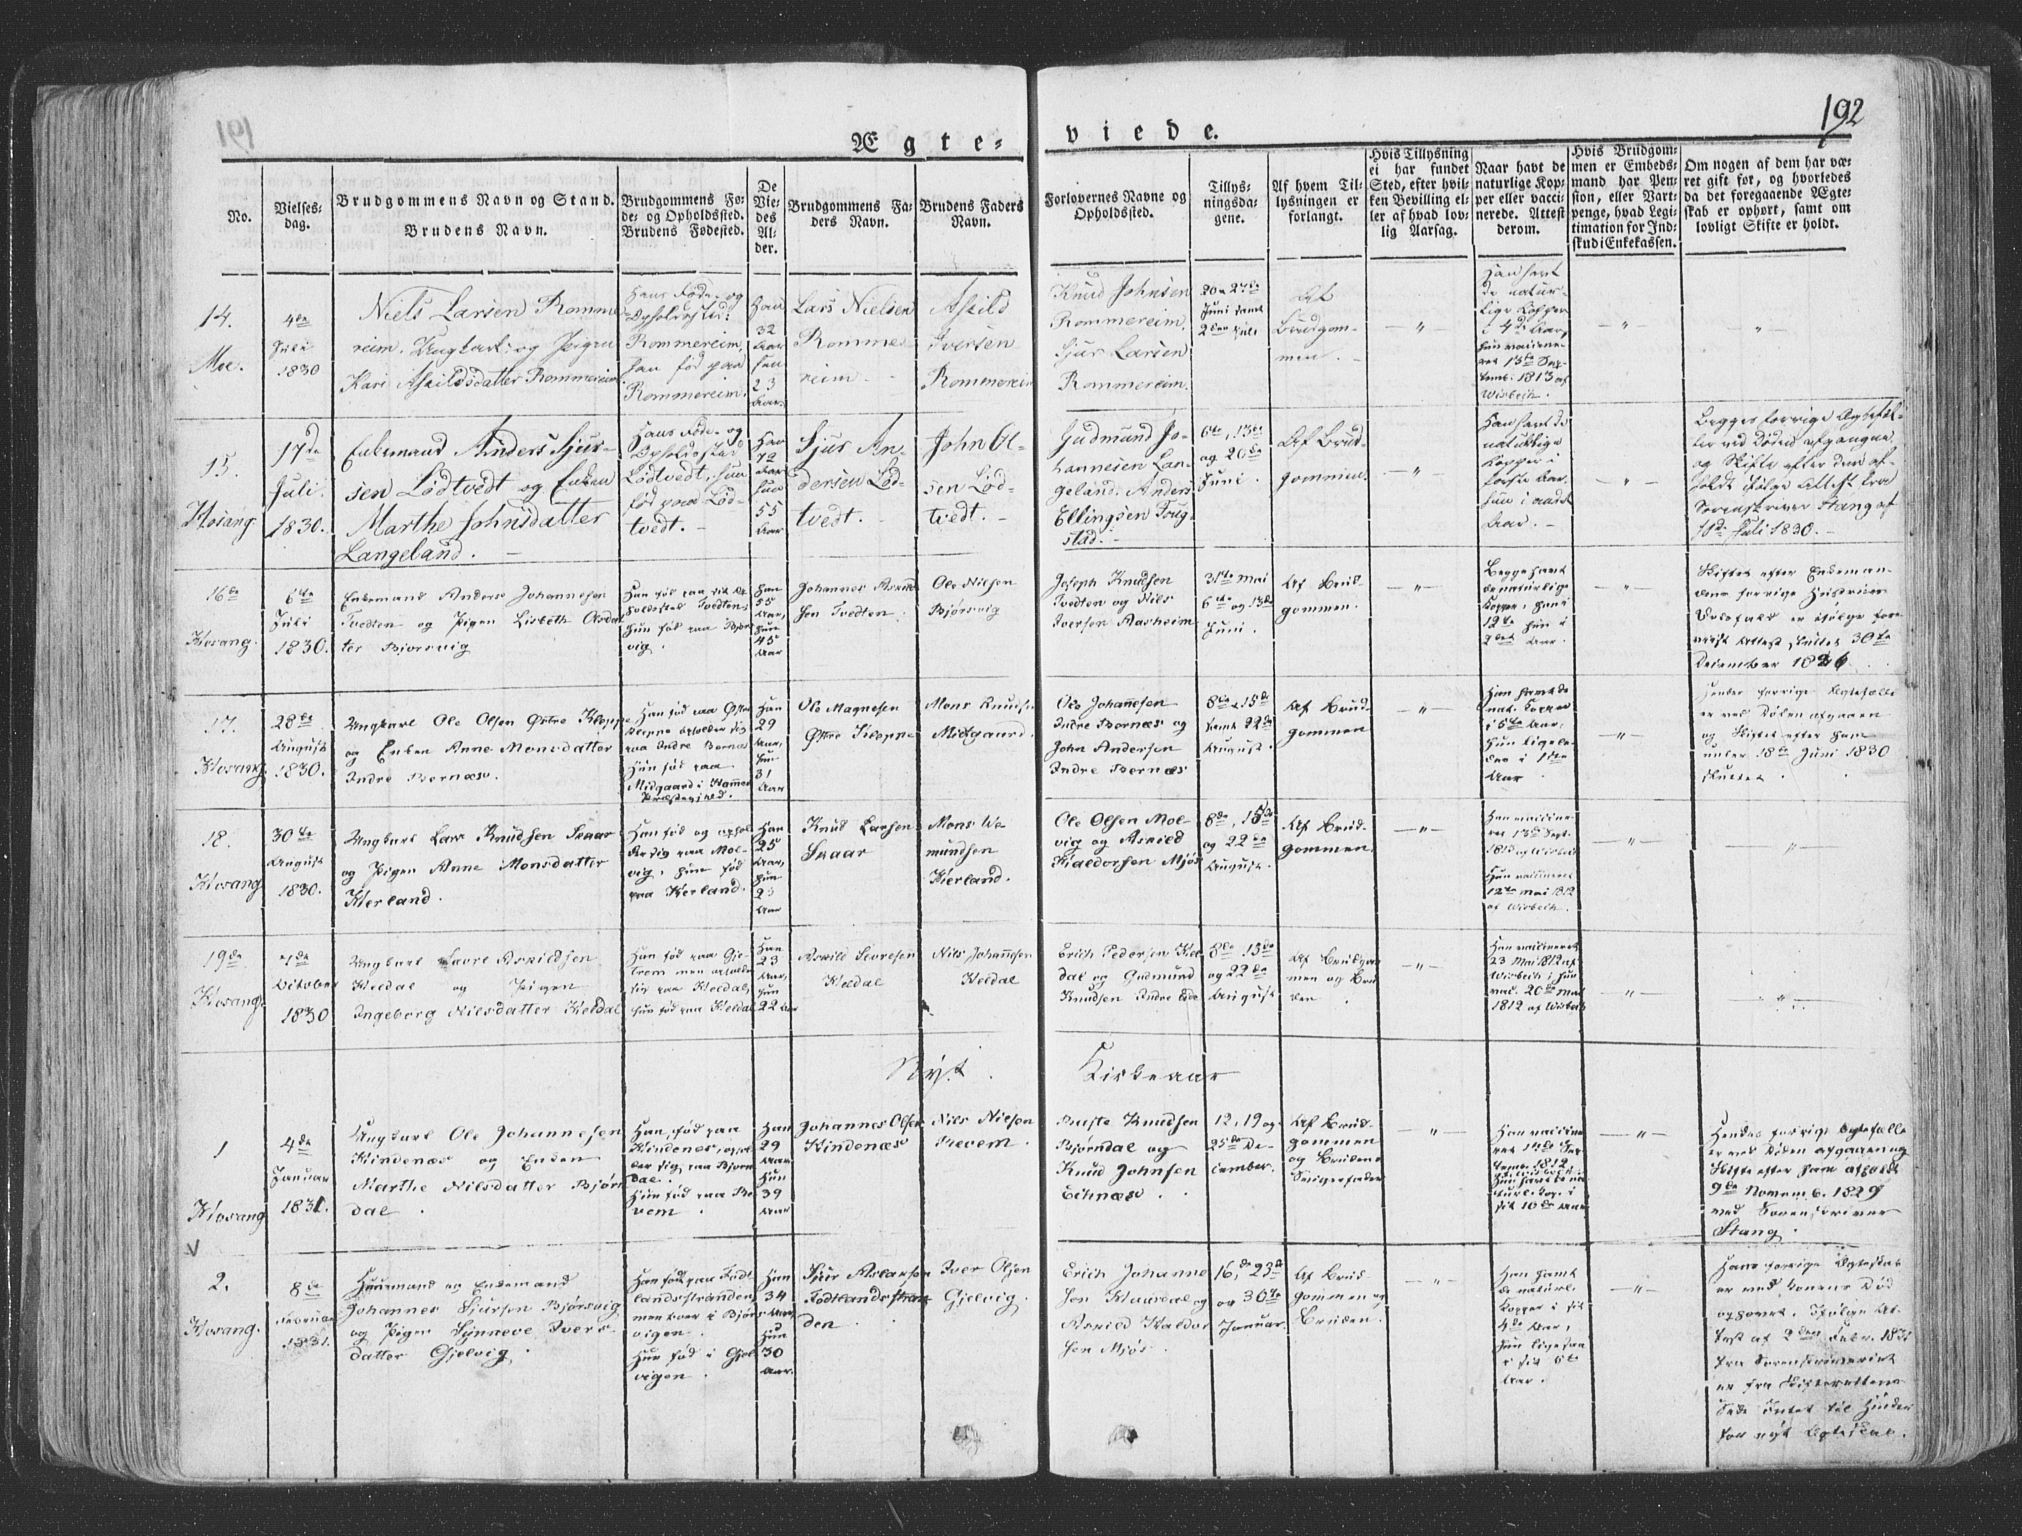 192
Ægte-
viede.
No.
Vielses-
dag.
Brudgommens Navn og Stand.
Brudens Navn.
Brudgommens Fø-
de- og Opholdssted.
Brudens Fødested.
De
Vie-
des
Al-
der.
Brudgommens Fa-
ders Navn.
Brudens Faders
Navn.
Forlovernes Navne og
Opholdssted.
Tillys-
ningsda-
gene.
Af hvem Til-
lysningen er
forlangt.
Hvis Tillysning
ei har fundet
Sted, efter hvil-
ken Bevilling el-
ler af hvad lov-
lig Aarsag.
Naar havt de
naturlige Kop-
per eller vacci-
nerede. Attest
derom.
Hvis Brudgom-
men er Embeds-
mand har Pen-
sion, eller Vart-
penge, hvad Legi-
timation for Ind-
skud i Enkekassen.
Om nogen af dem har væ-
ret gift før, og hvorledes
da det foregaaende Ægte-
skab er ophørt, samt om
lovligt Skifte er holdt.
14.
Moe.
4de
Juli
1830
Niels Larsen Romme
reim. Ungkarl, og Pigen
Kari Askildsdatter Rommereim
Hans Føde- og
Opholdssted:
Rommereim,
hun fød paa
Rommereim.
Han
32
Aar
hun
23
Aar.
Lars Nielsen
Romme-
reim
Askild
Iversen
Rommereim
Knud Johnsen
Rommereim.
Sjur Larsen
Rommereim.
20 27de
Juni samt
2den Juli
Af
Brudgom-
men.
Han havt
de natur-
lige Kopper
i 4de Aar,
hun vaccine-
ret 13de Sep-
temb. 1813 af
Wisbech.
15.
Hosang.
17de
Juli
1830.
Enkemand Anders Sjur-
sen Lødtvedt og Enken
Marthe Johnsdatter
Langeland.
Hans Føde- og
Opholdssted
Lødtvedt, hun
fød paa Lød-
tvedt.
Han
72
Aar
hun
55
Aar
Sjur An-
dersen Lød-
tvedt.
John Ol-
sen Lød-
tvedt.
Gudmund Jo-
hannesen Lan-
geland. Anders
Ellingsen Toug-
stad.
6te, 13de
og 20de
Juni.
Af Brud-
gommen.
Han havt de
naturlige
Kopper i
første Aar.
hun i andet
Aar.
Begges forrige Ægtefæl-
ler ved Døden afgangne
og Skifte efter dem af-
holdt ifølge Attest fra
Sorenskriver Stang af
1ste Juli 1830.
16de
Hosang.
6te
Juli
1830.
Enkemand Anders Johannesen
Tvedten og Pigen Lisbeth Olsdat
ter Bjørsvig
Han fød paa, sit Op
holdssted Tvedten.
Hun fød paa Bjørs
vig.
Han
55
Aar,
Hun
45
Aar
Johannes
sen Tvedten.
Ole Nilsen
Bjørsvig
Joseph Knudsen
Tvedten og Nils
Iversen Aasheim
31te Mai
6te og 13de
Juni.
Af Brud-
gommen.
Begge havt
de naturlige
Kopper, han i
12te hun i
2det Aar.
Skiftet efter Enkeman-
dens forrige Hustrue
December 1826
17.
Hosang.
28de
August
1830.
Ungkarl Ole Olsen Østre Kleppe
og Enken Anne Monsdatter
Indre Bernæs.
Han fød paa Østre
Kleppe opholder sig
paa Indre Bernæs
Hun fød paa
Midgaard i Hammer
Præstegjeld.
Han
29
Aar,
Hun
31
Aar
Ole Magnesen
Østre Kleppe
Mons Knudsen
Midgaard.
Ole Johannesen
Indre Bernæs og
John Andersen
Indre Bernæs
8de, 15de
samt 22de
August.
Af Brud
gommen
Han havt de
nat. Kopper
i 5te Aar,
Hun ligele-
des i 1ste
Aar
Hendes forrige Ægtefælle
er ved Døden afgaaen
og Skiftet efter ham
under 18de Juni 1830
sluttet.
18.
Hosang
30te
August
1830.
Ungkarl Lars Knudsen Skaar
og Pigen Anne Monsdatter
Kierland.
Han fød og ophol
der sig paa Mol-
vig, hun fød
paa Kierland.
Han
25
Aar,
Hun
23
Aar
Knud Larsen
Skaar
Mons We-
mundsen
Kierland.
Ole Olsen Mol-
vig og Askild
Haldorsen Mjøs
8de, 15de
og 22de
August.
Af Brud-
gommen.
Han vaccine-
ret 13de Sept.
1813 af Wisbech
Hun vaccineret
12te Mai 1812
af Wisbech.
19de
Hosang.
7de
October
1830
Ungkarl Sævre Askildsen
Keldal og Pigen
Ingeborg Nilsdatter Keldal
Han fød paa Gje-
trem men opholder
sig paa Keldal,
hun fød paa Keldal
Han
23
Aar,
Hun
22 Aar
Askild Sevresen
Keldal
Nils Johannesen
Keldal
Erich Pedersen Kel
dal og Gudmund
Knudsen Indre Eide
8de 15de
og 22de
August
Af Brudgom
men og Bru
den
Han vaccineret
23 Mai 1812 af
Wisbech, hun
vac. 20de Mai
1812 af Wisbech
Nyt
Kirkeaar
1
Hosang
4de
Januar
1831.
Ungkarl Ole Johannesen
Hindenæs og Enken
Marthe Nilsdatter Bjørn
dal
Han, fød paa
Hindenes, ophol
der sig paa Bjørn
dal.
Hun fød paa Re
vem.
Han
29
Aar
Hun
39
Aar
Johannes Olsen
Hindenæs
Nils Nilsen
Revem.
Knudsen
Bjørndal og
Knud Johnsen
Eitnæs.
12, 19 og
25de De-
cember.
Af Brud-
gommen
og Brudens
Svigerfader
Han vaccine
ret 14de Sep
temb. 1812
Hun havt de na
turl. Kop. i
sit 10de Aar
Hendes forrige Ægtefælle
er ved Døden afgaaen og
Skifte efter ham afholdt
9de Novemb. 1829
ved Sorenskriver
Stang.
V
2.
Hosang.
8de
Februar
1831.
Huusmand og Enkemand
Johannes Sjursen Bjørsvig
og Pigen Synneve Ivers
datter Gjelvig.
Han fød paa Født
landsstranden
men boer i Bjørs
vigen.
Hun fød i Gjel
vigen.
Han
34
Aar,
Hun
30
Aar.
Sjur Aslaksen
Fødtlandsstran
den.
Iver Olsen
Gjelvig.
Erich Johanne
sen Maurdal og
Askild Haldor
sen Mjøs.
16, de 23de
og 30te
Januar.
Af Brud
gommen og
Bruden.
Han havt
de naturl.
Kopper i sit
4de Aar,
Hun ligesaa
i sit 6te
Aar.
Hans forrige Ægteskab
er ved Konens Død
ophørt. Ifølge At-
test af 2den Febr. 1831
fra Sorenskriveriet
er fra Skifterettens
Side Intet til Hinder
for nyt Ægteskab.